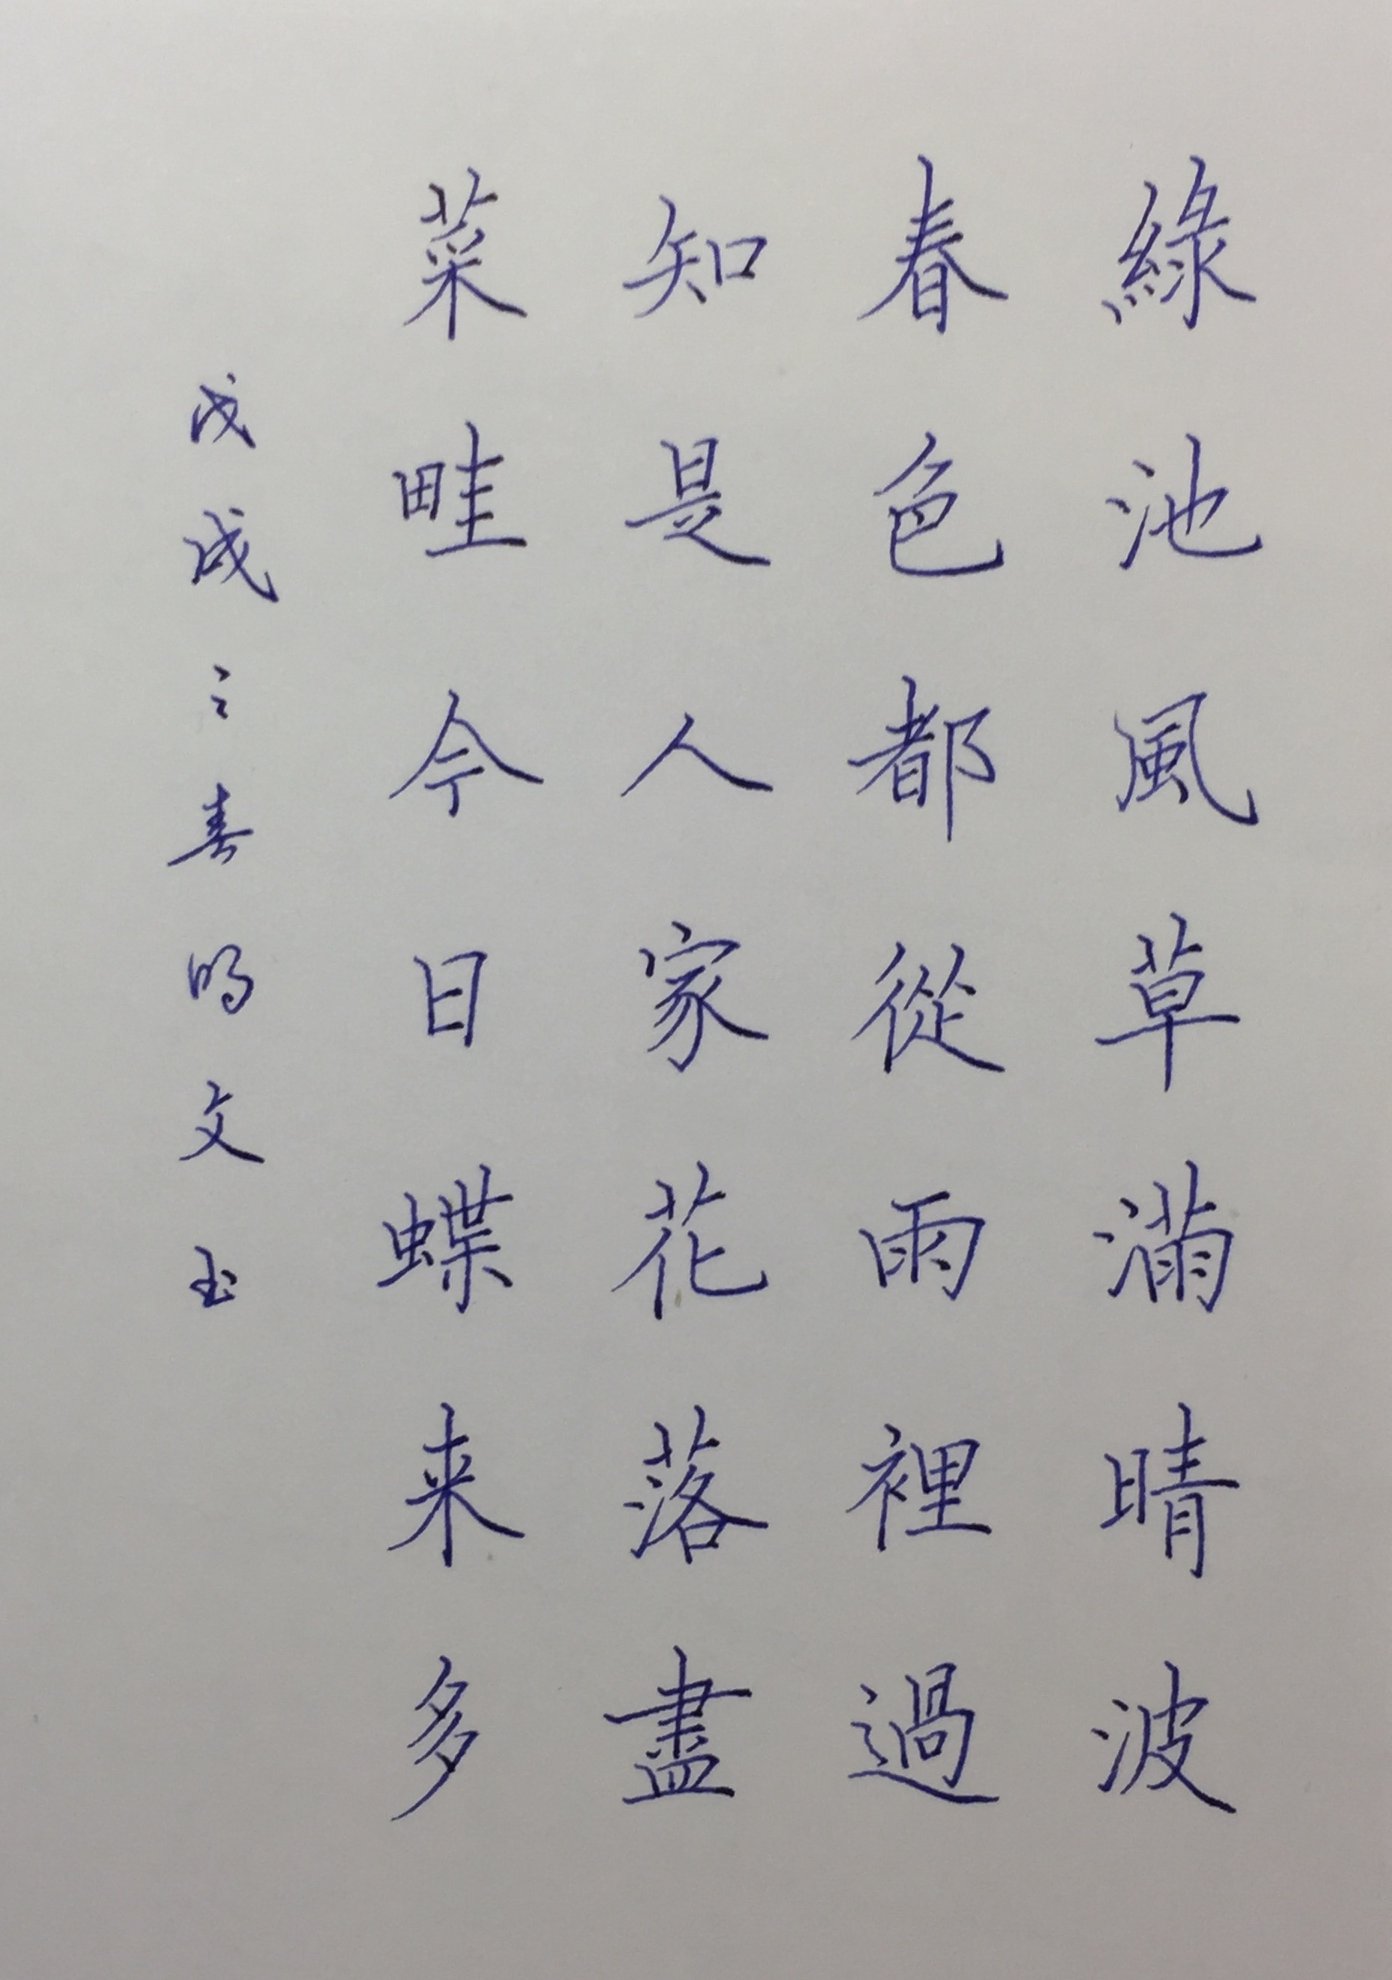 綠池風草滿晴波
春色都從雨裡過
知是人家花落盡
菜畦今日蝶来多
戊戌之春鸣文书